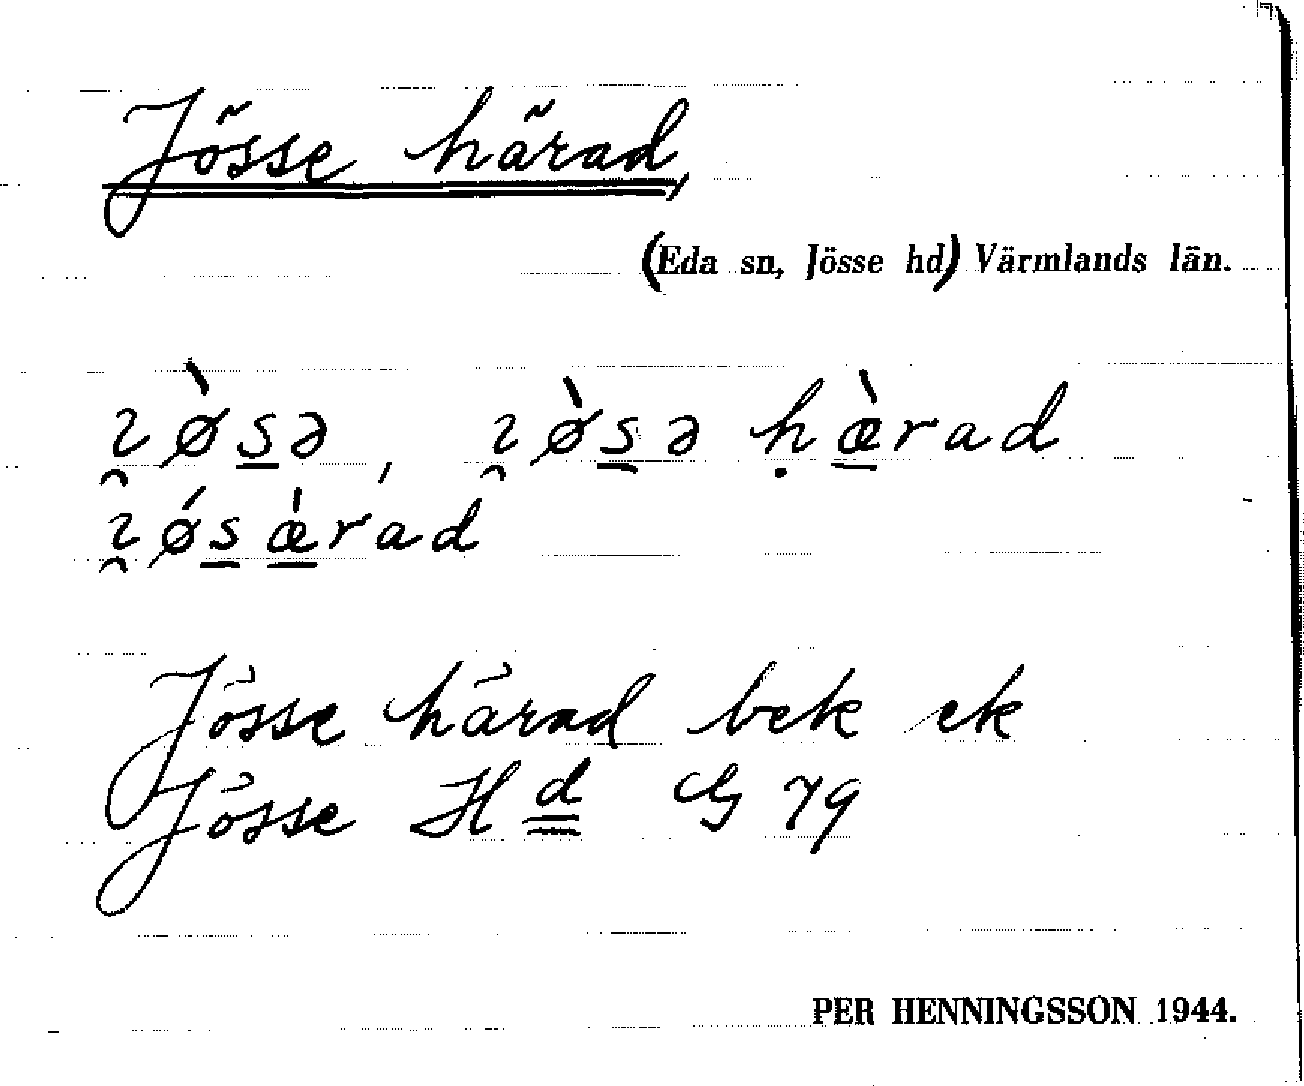 Jösse härad,
(Eda sn, Jösse hd) Värmlands län.
ɿø̀sə, ɿø̀sə ḥæ̀rad
ɿǿsæ̀rad
Jösse härad bek ek
Jösse Hd G 79
PER HENNINGSSON 1944.